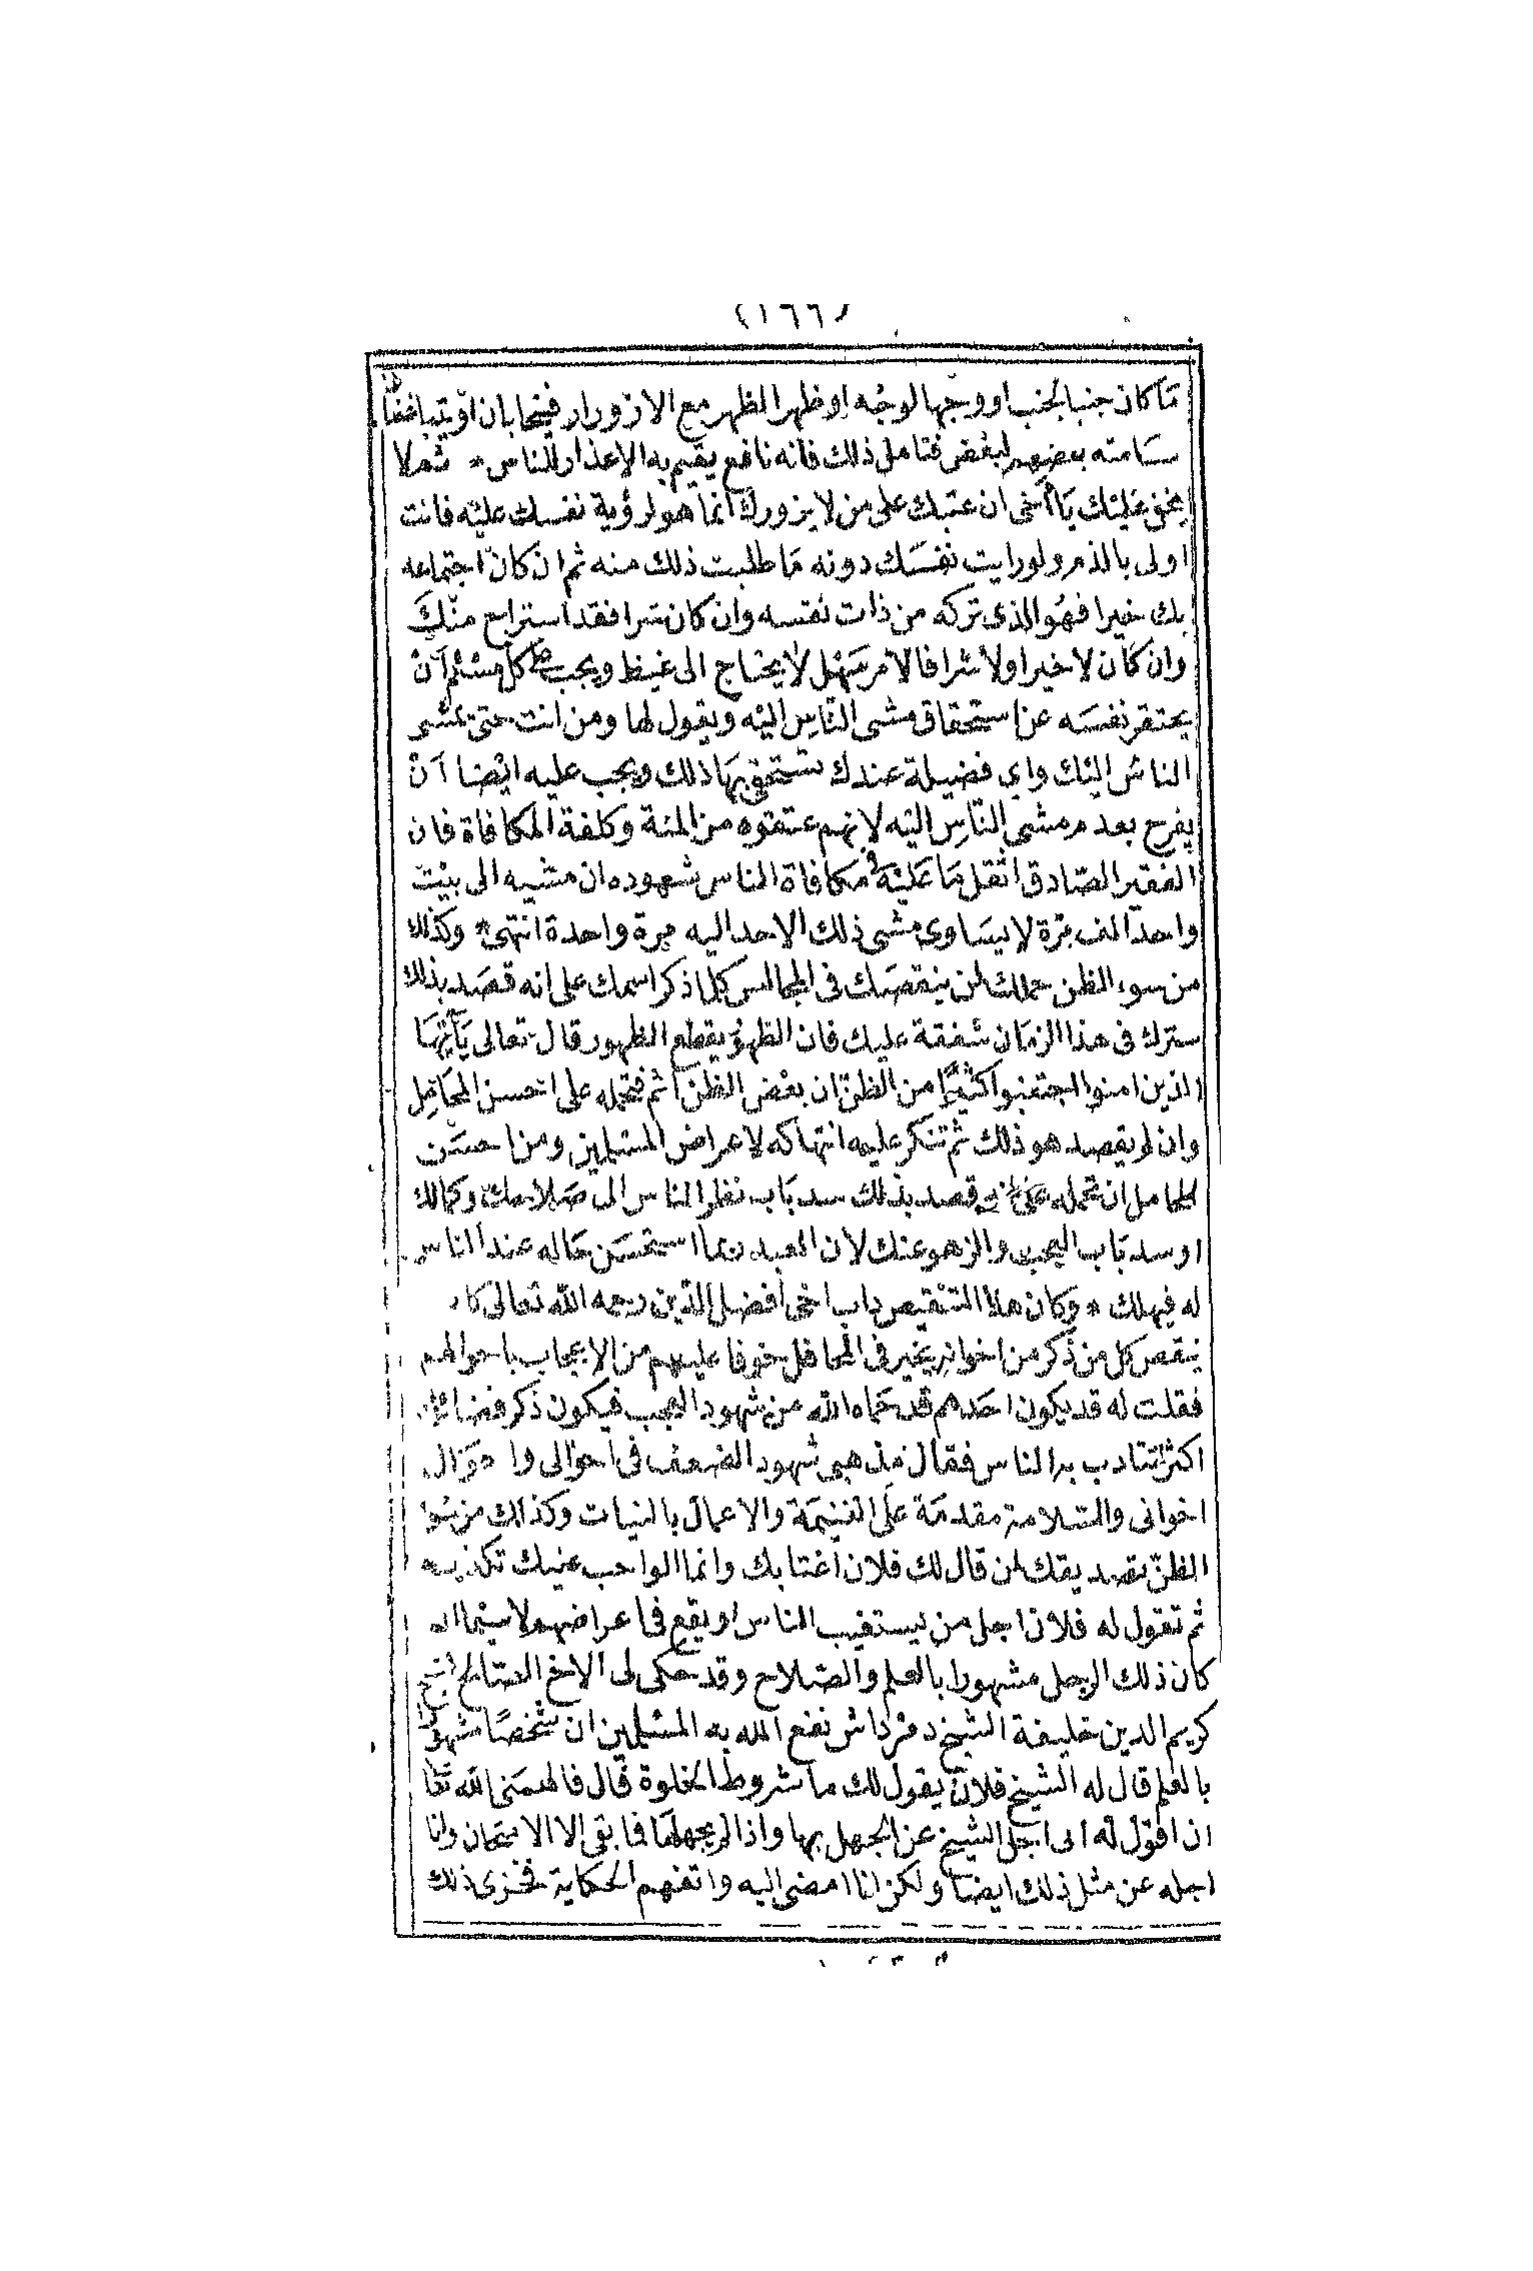 (١٦٦)
ما كان جنبا لجنب او وجها لوجه او ظهرا لظهر مع الازورار فيتحابان او يتباغضا
سامته بعضهم لبعض فتامل ذلك فانه نافع يقيم به الاعذار للناس * ثم لا
يخفى عليك يا أخى ان عتبك على من لا يزورك انما هو لرؤية نفسك عليه فانت
اولى بالذم ولو رايت نفسك دونه ما طلبت ذلك منه ثم ان كان اجتماعه
بك خيرا فهو الذى تركه من ذات نفسه وان كان شرا فقد استراح منك
وان كان لا خيرا ولا شرا فالامر سهل لا يحتاج الى غيظ ويجب على كل مسلم أن
يحتقر نفسه عن استحقاق مشى الناس اليه ويقول لها ومن انت حتى تمشى
الناس اليك واي فضيلة عندك تستحق بها ذلك ويجب عليه ايضا أن
يفرح بعدم مشى الناس اليه لانهم عتقوه من المنة وكلفة المكافاة فان
الفقير الصادق اثقل ما عليه مكافاة الناس شهوده ان مشيه الى بيت
واحد الف مرة لا يساوى مشى ذلك الاحد اليه مرة واحدة انتهى * وكذلك
من سوء الظن حملك من ينقصك فى المجالس كلما ذكر اسمك على انه قصد بذلك
سترك فى هذا الزمان شفقة عليك فان الظهور يقطع الظهور قال تعالى يا أيها
الذين امنوا اجتنبوا كثيرا من الظن ان بعض الظن اثم فتحمله على احسن المحامل
وان لم يقصد هو ذلك ثم تنكر عليه انتهاكه لاعراض المسلمين ومن احسن
المحامل ان تحمله على انه قصد بذلك سد باب نظر الناس الى صلاحك وكمالك
او سد باب العجب والزهو عنك لان العبد ربما استحسن حاله عند الناس
له فيهلك * وكان هذا التنقيص داب اخى افضل الدين رحمه الله تعالى كان
ينقص كل من ذكر من اخوانه بخير فى المحافل خوفا عليهم من الاعجاب باحوالهم
فقلت له قد يكون احدهم قد حماه الله من شهود العجب فيكون ذكر فضائله
اكثر لتتادب به الناس فقال مذهبى شهود الضعف فى احوالى واحوال
اخوانى والسلامة مقدمة على الغنيمة والاعمال بالنيات وكذلك من سوء
الظن تصديقك لمن قال لك فلان أغتابك وانما الواجب عليك تكذيبه
ثم تقول له فلان اجل من يستغيب الناس او يقع فى اعراضهم لا سيما ان
كان ذلك الرجل مشهورا بالعلم والصلاح وقد حكى لى الاخ الصالح الشيخ
كريم الدين خليفة الشيخ دمرداش نفع الله به المسلمين ان شخصا مشهورا
بالعلم قال له الشيخ فلان يقول لك ما شروط الخلوة قال فالهمنى الله تعا
ان اقول له انى اجل الشيخ عن الجهل بها واذا لم يجهلها فما بقى الا الامتحان وانا
اجله عن مثل ذلك ايضا ولكن انا امضى اليه واتفهم الحكاية فخزى ذلك